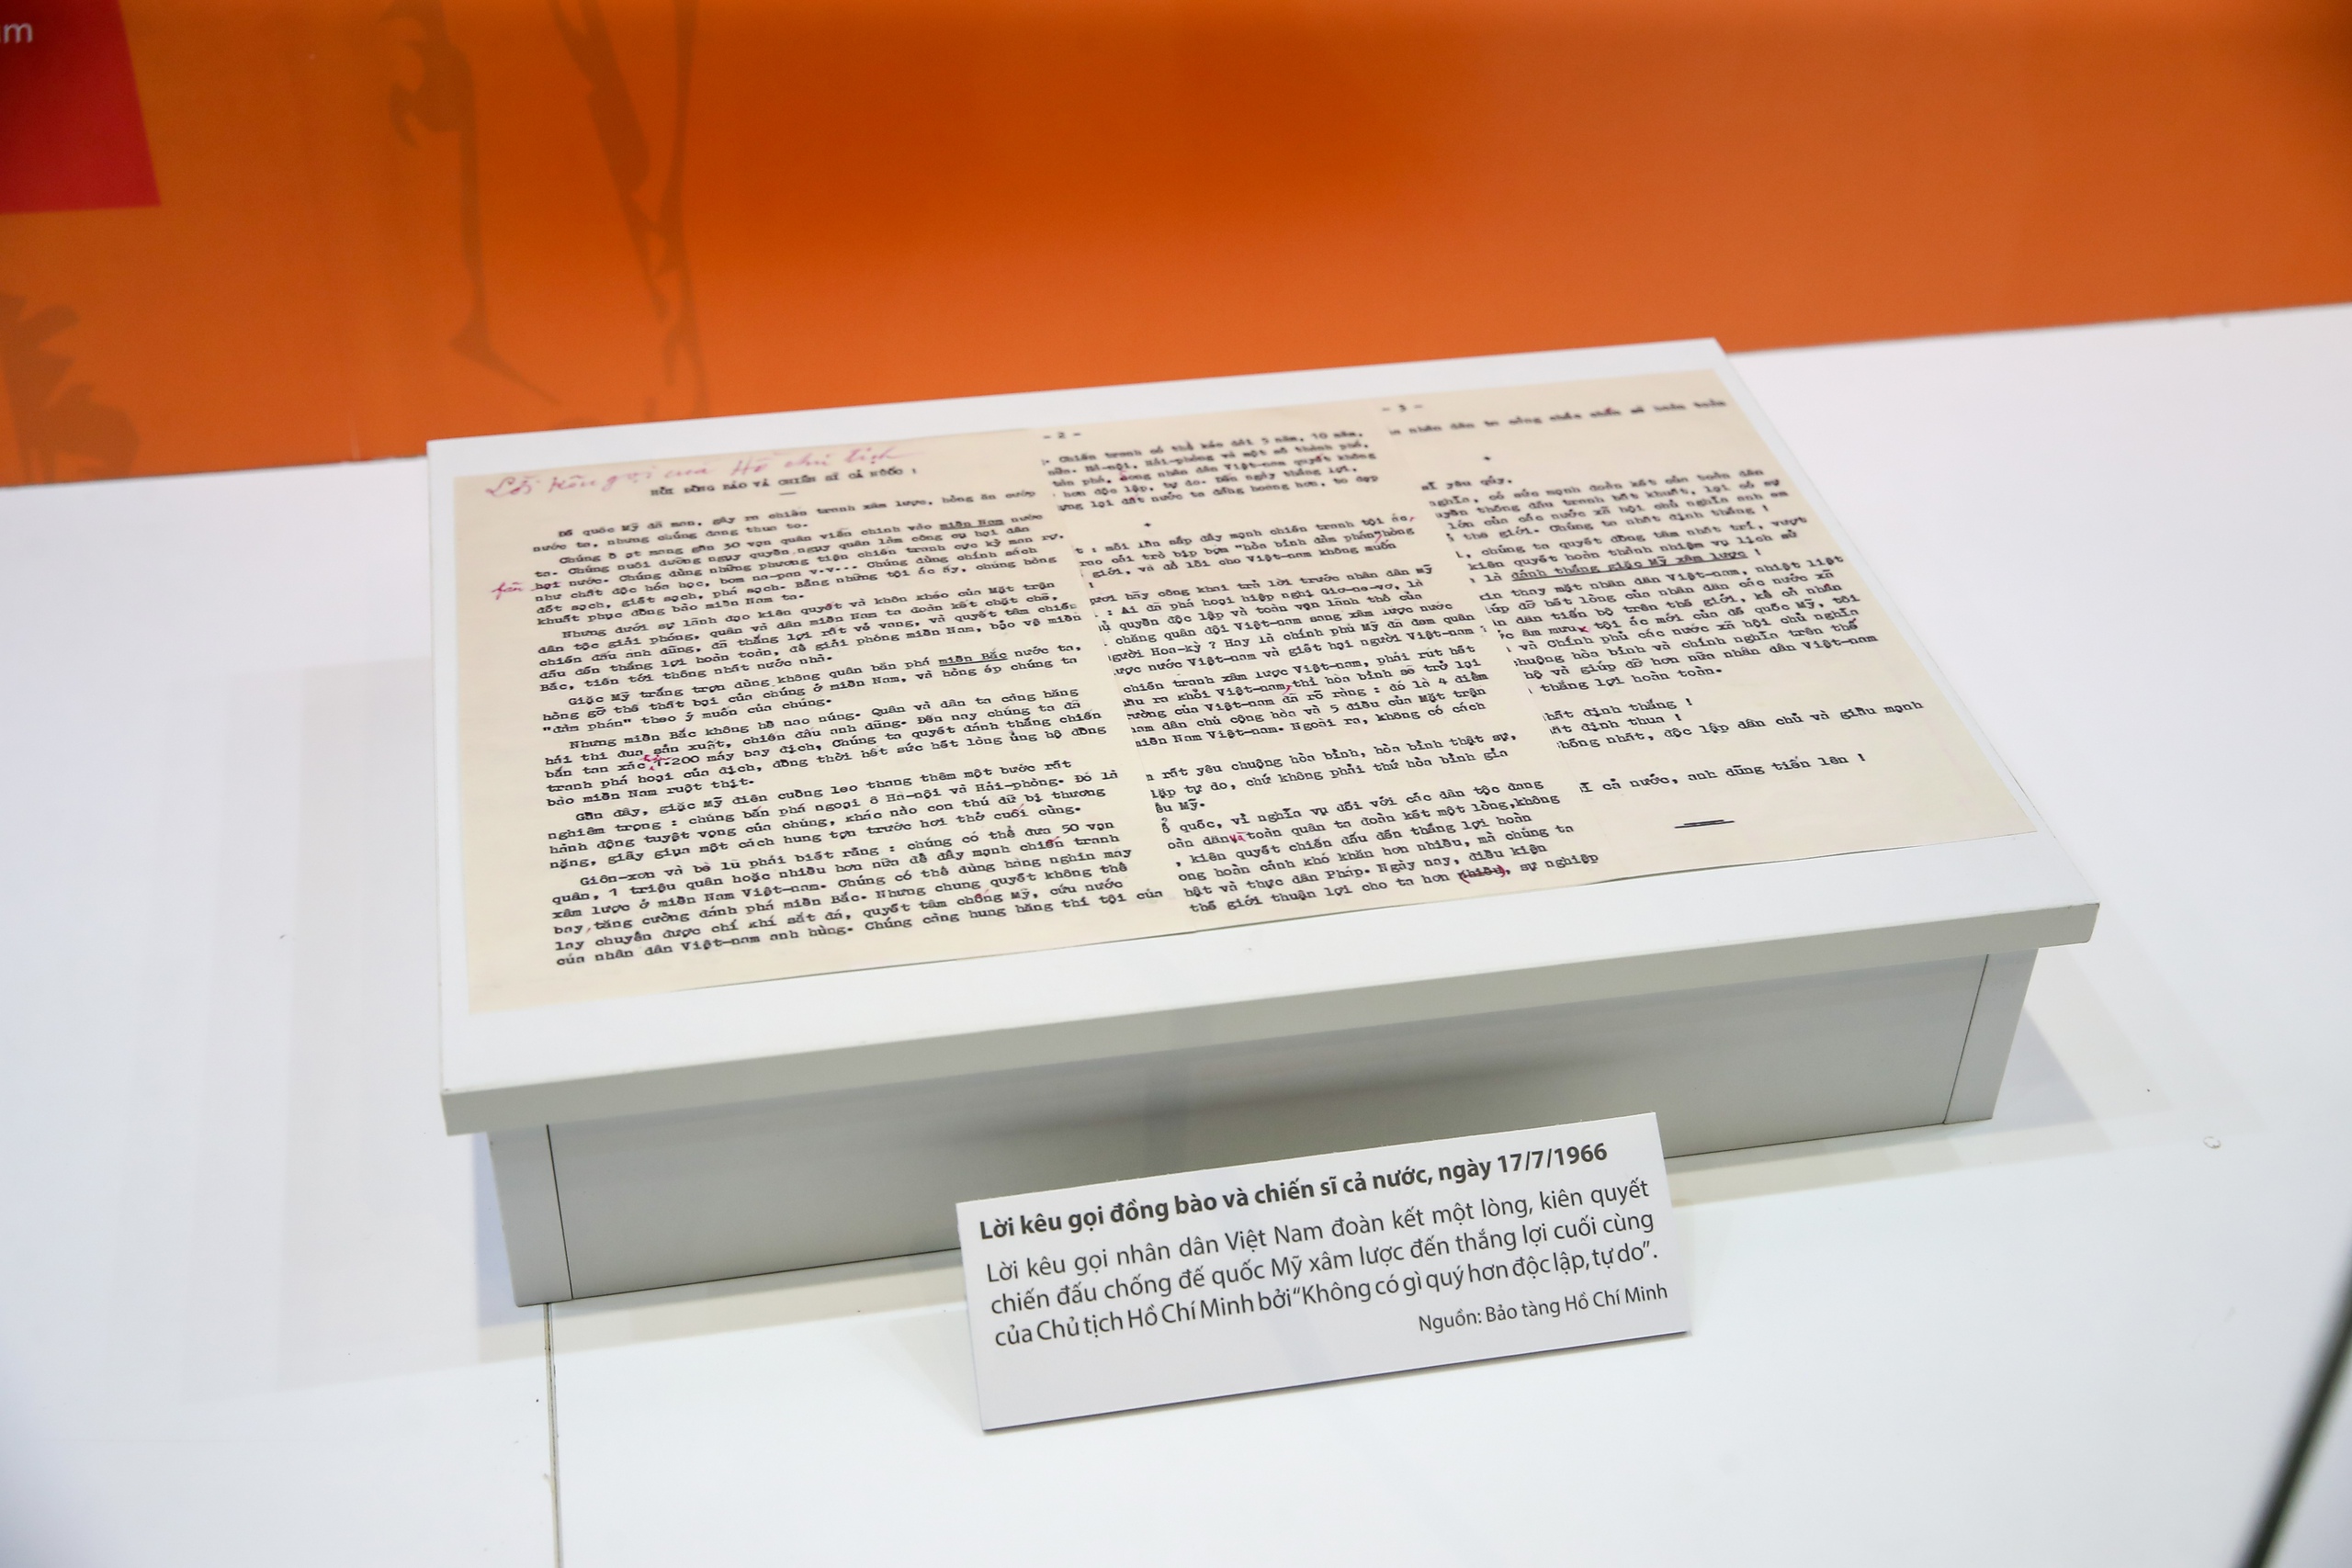 Lời kêu gọi của Hồ chủ tịch
HỠI ĐỒNG BÀO VÀ CHIẾN SĨ CẢ NƯỚC !
Đế quốc Mỹ dã man, gây ra chiến tranh xâm lược, hòng ăn cướp
nước ta, nhưng chúng đang thua to.
Chúng ồ ạt mang gần 30 vạn quân viễn chinh vào miền Nam nước
ta. Chúng nuôi dưỡng ngụy quyền, ngụy quân làm công cụ hại dân
hại nước. Chúng dùng những phương tiện chiến tranh cực kỳ man rợ,
như chất độc hóa học, bom na-pan v.v... Chúng dùng chính sách
đốt sạch, giết sạch, phá sạch. Bằng những tội ác ấy, chúng hòng
khuất phục đồng bào miền Nam ta.
Nhưng dưới sự lãnh đạo kiên quyết và khôn khéo của Mặt trận
dân tộc giải phóng, quân và dân miền Nam ta đoàn kết chặt chẽ,
chiến đấu anh dũng, đã thắng lợi rất vẻ vang, và quyết tâm chiến
đấu đến thắng lợi hoàn toàn, để giải phóng miền Nam, bảo vệ miền
Bắc, tiến tới thống nhất nước nhà.
Giặc Mỹ trắng trợn dùng không quân bắn phá miền Bắc nước ta,
hòng gỡ thế thất bại của chúng ở miền Nam, và hòng ép chúng ta
"đàm phán" theo ý muốn của chúng.
Nhưng miền Bắc không hề nao núng. Quân và dân ta càng hăng
hái thi đua sản xuất, chiến đấu anh dũng. Đến nay chúng ta đã
bắn tan xác 1.200 máy bay địch, Chúng ta quyết đánh thắng chiến
tranh phá hoại của địch, đồng thời hết sức hết lòng ủng hộ đồng
bào miền Nam ruột thịt.
Gần đây, giặc Mỹ điên cuồng leo thang thêm một bước rất
nghiêm trọng : chúng bắn phá ngoại ô Hà-nội và Hải-phòng. Đó là
hành động tuyệt vọng của chúng, khác nào con thú dữ bị thương
nặng, giãy giụa một cách hung tợn trước hơi thở cuối cùng.
Giôn-xơn và bè lũ phải biết rằng : chúng có thể đưa 50 vạn
quân, 1 triệu quân hoặc nhiều hơn nữa để đẩy mạnh chiến tranh
xâm lược ở miền Nam Việt-nam. Chúng có thể dùng hàng nghìn máy
bay, tăng cường đánh phá miền Bắc. Nhưng chúng quyết không thể
lay chuyển được chí khí sắt đá, quyết tâm chống Mỹ, cứu nước
của nhân dân Việt-nam anh hùng. Chúng càng hung hăng thì tội của
- 2 -
Chiến tranh có thể kéo dài 5 năm, 10 năm,
nữa. Hà-nội, Hải-phòng và một số thành phố,
tàn phá, song nhân dân Việt-nam quyết không
hơn độc lập, tự do. Đến ngày thắng lợi,
ựng lại đất nước ta đàng hoàng hơn, to đẹp
: mỗi lần sắp đẩy mạnh chiến tranh tội ác,
trò bịp bợm "hòa bình đàm phán" hòng
giới, và đổ lỗi cho Việt-nam không muốn
hãy công khai trả lời trước nhân dân Mỹ
: Ai đã phá hoại hiệp nghị Giơ-ne-vơ, là
quyền độc lập và toàn vẹn lãnh thổ của
chăng quân đội Việt-nam sang xâm lược nước
gười Hoa-kỳ ? Hay là chính phủ Mỹ đã đem quân
ược nước Việt-nam và giết hại người Việt-nam
chiến tranh xâm lược Việt-nam, phải rút hết
ra khỏi Việt-nam, thì hòa bình sẽ trở lại
rường của Việt-nam đã rõ ràng : đó là 4 điểm
dân chủ cộng hòa và 5 điều của Mặt trận
miền Nam Việt-nam. Ngoài ra, không có cách
rất yêu chuộng hòa bình, hòa bình thật sự,
lập tự do, chứ không phải thứ hòa bình giả
Mỹ.
quốc, vì nghĩa vụ đối với các dân tộc đang
oàn dân và toàn quân ta đoàn kết một lòng, không
, kiên quyết chiến đấu đến thắng lợi hoàn
ong hoàn cảnh khó khăn hơn nhiều, mà chúng ta
hật và thực dân Pháp. Ngày nay, điều kiện
thế giới thuận lợi cho ta hơn nhiều, sự nghiệp
- 3 -
nhân dân ta
sĩ yêu quý,
nghĩa, có sức mạnh đoàn kết của toàn dân
uyền thống đấu tranh bất khuất, lại có sự
lớn của các nước xã hội chủ nghĩa anh em
thế giới. Chúng ta nhất định thắng !
, chúng ta quyết đồng tâm nhất trí, vượt
kiên quyết hoàn thành nhiệm vụ lịch sử
là đánh thắng giặc Mỹ xâm lược !
in thay mặt nhân dân Việt-nam, nhiệt liệt
úp đỡ hết lòng của nhân dân các nước xã
n dân tiến bộ trên thế giới, kể cả nhân
âm mưu, tội ác mới của đế quốc Mỹ, tôi
và Chính phủ các nước xã hội chủ nghĩa
huộng hòa bình và chính nghĩa trên thế
hộ và giúp đỡ hơn nữa nhân dân Việt-nam
thắng lợi hoàn toàn.
hất định thắng !
ất định thua !
hống nhất, độc lập dân chủ và giầu mạnh
ĩ cả nước, anh dũng tiến lên !
Lời kêu gọi đồng bào và chiến sĩ cả nước, ngày 17/7/1966
Lời kêu gọi nhân dân Việt Nam đoàn kết một lòng, kiên quyết
chiến đấu chống đế quốc Mỹ xâm lược đến thắng lợi cuối cùng
của Chủ tịch Hồ Chí Minh bởi "Không có gì quý hơn độc lập, tự do".
Nguồn: Bảo tàng Hồ Chí Minh